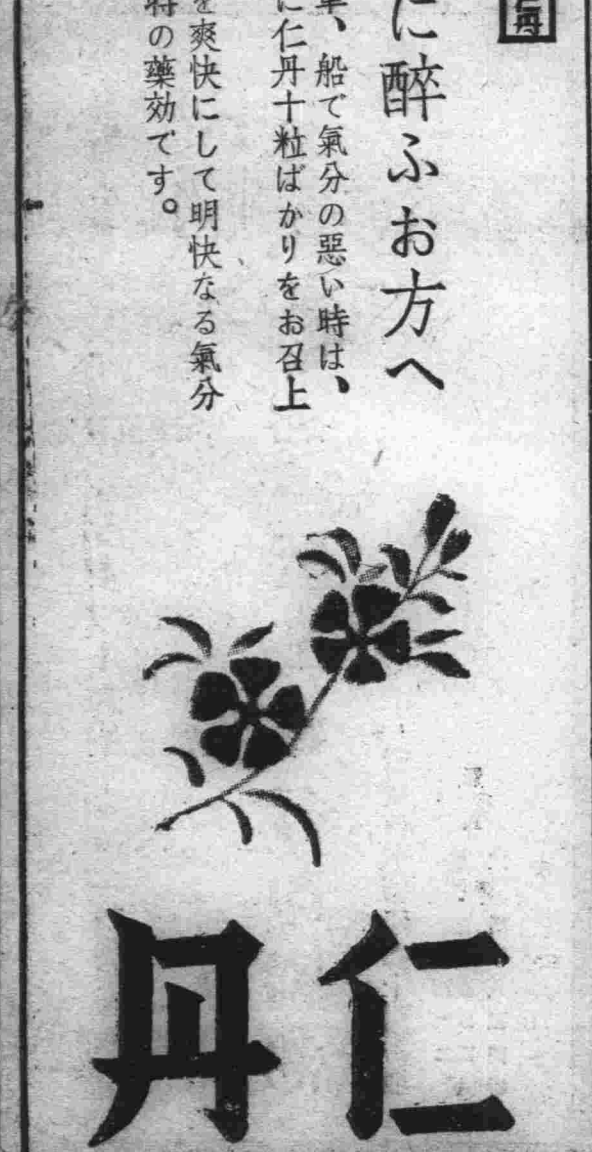 仁丹
に醉ふお方へ
、船で氣分の惡い時は、
に仁丹十粒ばかりをお召上
を爽快にして明快なる氣分
特の藥効です。
仁丹